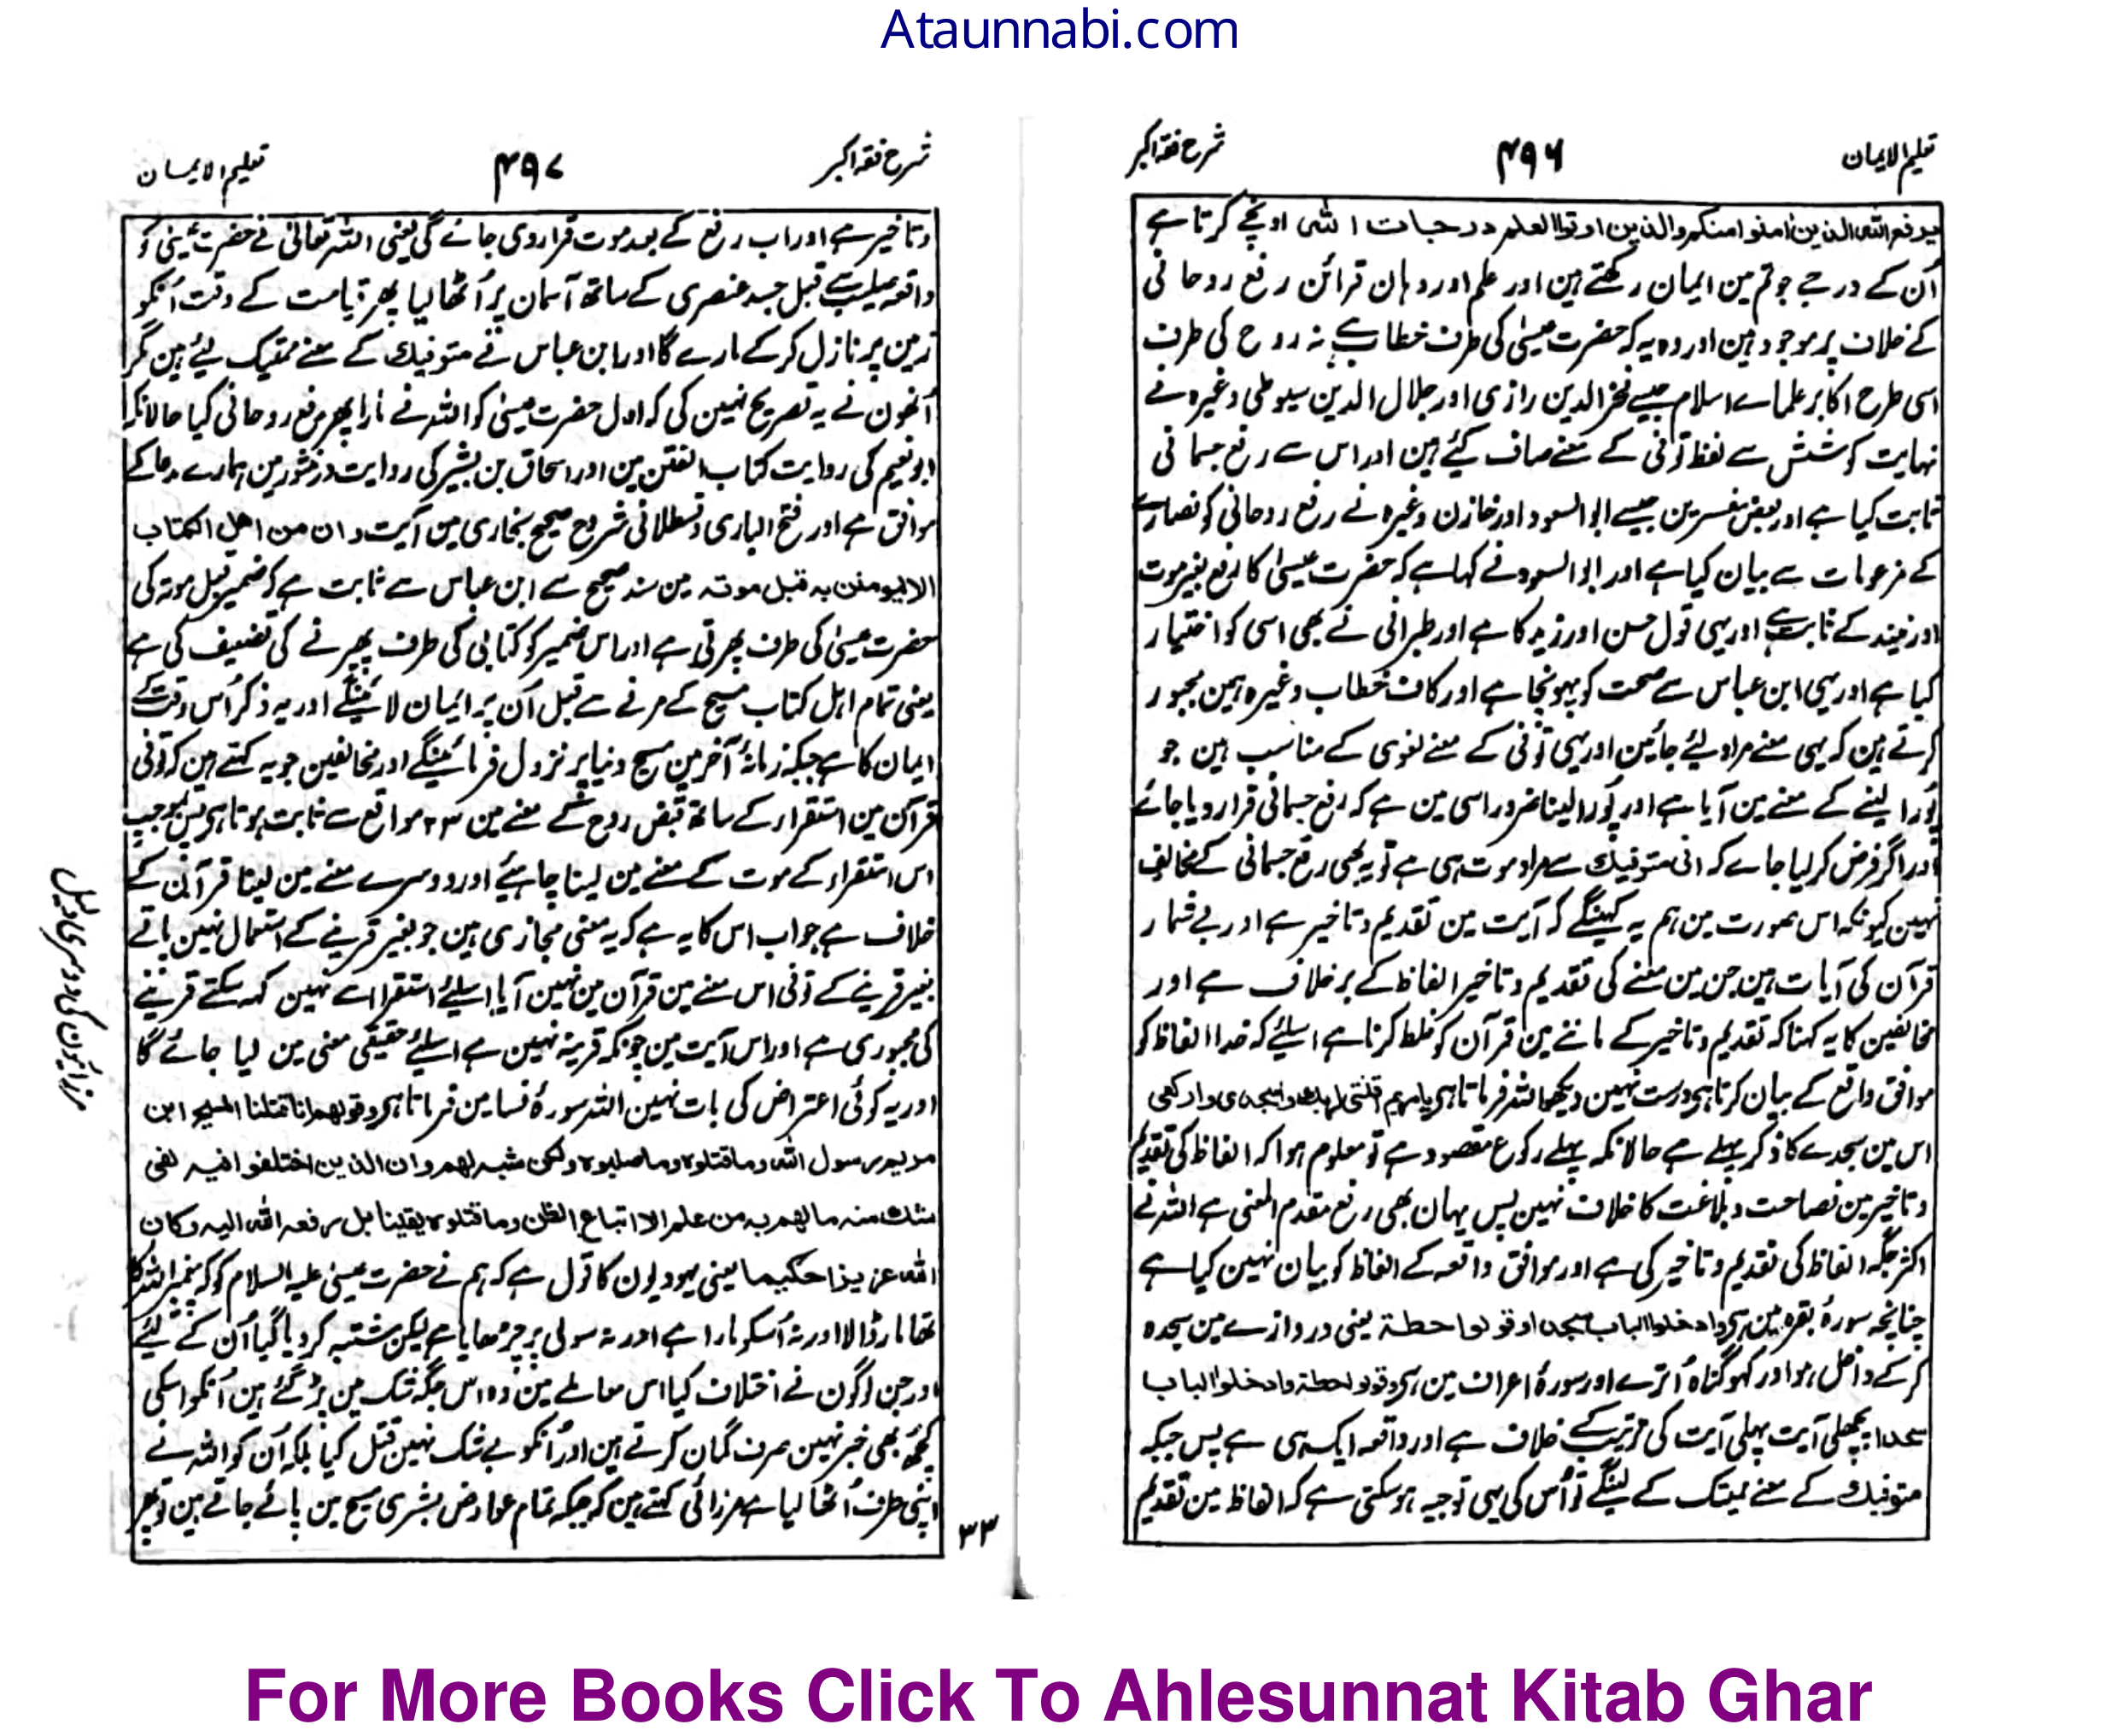 Ataunnabi.com
تعلیم الایمان
۴۹۶
شرح فقہ اکبر
یرفع اللہ الذین اٰمنوا منکم والذین اوتوا العلم درجات اللہ اونچے کرتا ہے
اُن کے درجے جو تم مین ایمان رکھتے ہین اور علم اور وہان قرائن رفع روحانی
کے خلاف پر موجود ہین اور وہ یہ کہ حضرت عیسیٰ کی طرف خطاب ہے نہ روح کی طرف
اسی طرح اکابر علماے اسلام جیسے فخر الدین رازی اور جلال الدین سیوطی وغیرہ نے
نہایت کوشش سے لفظ توفی کے معنے صاف کیے ہین اور اس سے رفع جسمانی
ثابت کیا ہے اور بعض مفسرین جیسے ابوالسعود اور خازن وغیرہ نے رفع روحانی کو نصارے
کے مزعومات سے بیان کیا ہے اور ابوالسعود نے کہا ہے کہ حضرت عیسیٰ کا رفع بغیر موت
اور نیند کے ثابت ہے اور یہی قول حسن اور زید کا ہے اور طبرانی نے بھی اسی کو اختیار
کیا ہے اور یہی ابن عباس سے صحت کو پہونچا ہے اور کاف خطاب وغیرہ ہمین مجبور
کرتے ہین کہ یہی معنے مراد لیے جائین اور یہی توفی کے معنے لغوی کے مناسب ہین جو
پُورا لینے کے معنے مین آیا ہے اور پُورا لینا ضرور اسی مین ہے کہ رفع جسمانی قرار دیا جائے
اور اگر فرض کر لیا جاے کہ انی متوفیک سے مراد موت ہی ہے تو یہ بھی رفع جسمانی کے مخالف
نہین کیونکہ اس صورت مین ہم یہ کہینگے کہ آیت مین تقدیم و تاخیر ہے اور بے شمار
قرآن کی آیات ہین جن مین معنے کی تقدیم و تاخیر الفاظ کے برخلاف ہے اور
مخالفین کا یہ کہنا کہ تقدیم و تاخیر کے ماننے مین قرآن کو غلط کرنا ہے اسلیے کہ خدا الفاظ کو
موافق واقع کے بیان کرتا ہی درست نہین دیکھو اللہ فرماتا ہی یا مریم اقنتی لربک واسجدی وارکعی
اس مین سجدے کا ذکر پہلے ہے حالانکہ پہلے رکوع مقصود ہے تو معلوم ہوا کہ الفاظ کی تقدیم
و تاخیر مین فصاحت و بلاغت کا خلاف نہین پس یہان بھی رفع مقدم المعنی ہے اللہ نے
اکثر جگہ الفاظ کی تقدیم و تاخیر کی ہے اور موافق واقعہ کے الفاظ کو بیان نہین کیا ہے
چنانچہ سورۂ بقرہ مین ہی وادخلوا الباب سجدا وقولوا حطة یعنی دروازے مین سجدہ
کرکے داخل ہو اور کہو گناہ اُترے اور سورۂ اعراف مین ہی وقولوا حطة وادخلوا الباب
سجدا پچھلی آیت پہلی آیت کی ترتیب کے خلاف ہے اور واقعہ ایک ہی ہے پس جبکہ
متوفیک کے معنے ممیتک کے لینگے تو اُس کی یہی توجیہ ہو سکتی ہے کہ الفاظ مین تقدیم
شرح فقہ اکبر
۴۹۷
تعلیم الایمان
و تاخیر ہے اور اب رفع کے بعد موت قرار دی جائے گی یعنی اللہ تعالیٰ نے حضرت عیسیٰ کو
واقعہ صلیب سے قبل جسد عنصری کے ساتھ آسمان پر اُٹھا لیا پھر قیامت کے وقت اُنکو
زمین پر نازل کرکے مارے گا اور ابن عباس نے متوفیک کے معنے ممیتک لیے ہین مگر
اُنھون نے یہ تصریح نہین کی کہ اول حضرت عیسیٰ کو اللہ نے مارا پھر رفع روحانی کیا حالانکہ
ابونعیم کی روایت کتاب الفتن مین اور اسحاق بن بشیر کی روایت درمنثور مین ہمارے مدعا کے
موافق ہے اور فتح الباری و قسطلانی شروح صحیح بخاری مین آیت و ان من اھل الکتاب
الا لیومنن بہ قبل موتہ مین سند صحیح سے ابن عباس سے ثابت ہے کہ ضمیر قبل موتہ کی
حضرت عیسیٰ کی طرف پھرتی ہے اور اس ضمیر کو کتابی کی طرف پھیرنے کی تضعیف کی ہے
یعنی تمام اہل کتاب مسیح کے مرنے سے قبل اُن پر ایمان لائینگے اور یہ ذکر اُس وقت کے
ایمان کا ہے جبکہ زمانۂ آخر مین مسیح دنیا پر نزول فرمائینگے اور مخالفین جو یہ کہتے ہین کہ توفی
قرآن مین استقراء کے ساتھ قبض روح کے معنے مین ۲۳ مواقع سے ثابت ہوتا ہی پس بموجب
اس استقراء کے موت کے معنے مین لینا چاہیے اور دوسرے معنے مین لینا قرآن کے
خلاف ہے جواب اس کا یہ ہے کہ یہ معنی مجازی ہین جو بغیر قرینے کے استعمال نہین پاتے
بغیر قرینے کے توفی اس معنے مین قرآن مین نہین آیا اسلیے استقراء سے نہین کہہ سکتے قرینے
کی مجبوری ہے اور اس آیت مین چونکہ قرینہ نہین ہے اسلیے حقیقی معنی مین لیا جائے گا
اور یہ کوئی اعتراض کی بات نہین اللہ سورۂ نسا مین فرماتا ہی وقولھم انا قتلنا المسیح ابن
مریم رسول اللہ وما قتلوہ وما صلبوہ ولکن شبہ لھم وان الذین اختلفوا فیہ لفی
شک منہ مالھم بہ من علم الا اتباع الظن وما قتلوہ یقینا بل رفعہ اللہ الیہ وکان
اللہ عزیزا حکیما یعنی یہودیون کا قول ہے کہ ہم نے حضرت عیسیٰ علیہ السلام کو کہ پیغمبر اللہ کا
تھا مار ڈالا اور نہ اُسکو مارا ہے اور نہ سولی پر چڑھایا ہے لیکن مشتبہ کر دیا گیا اُن کے لیے
اور جن لوگون نے اختلاف کیا اس معاملے مین وہ اس جگہ شک مین پڑ گئے ہین اُنکو اسکی
کچھ بھی خبر نہین صرف گمان کرتے ہین اور اُنکو بے شک نہین قتل کیا بلکہ اُن کو اللہ نے
اپنی طرف اُٹھا لیا ہے مرزائی کہتے ہین کہ جبکہ تمام عوارض بشری مسیح مین پائے جاتے ہین تو پھر
مرزائیون کی دوسری دلیل
۳۳
For More Books Click To Ahlesunnat Kitab Ghar